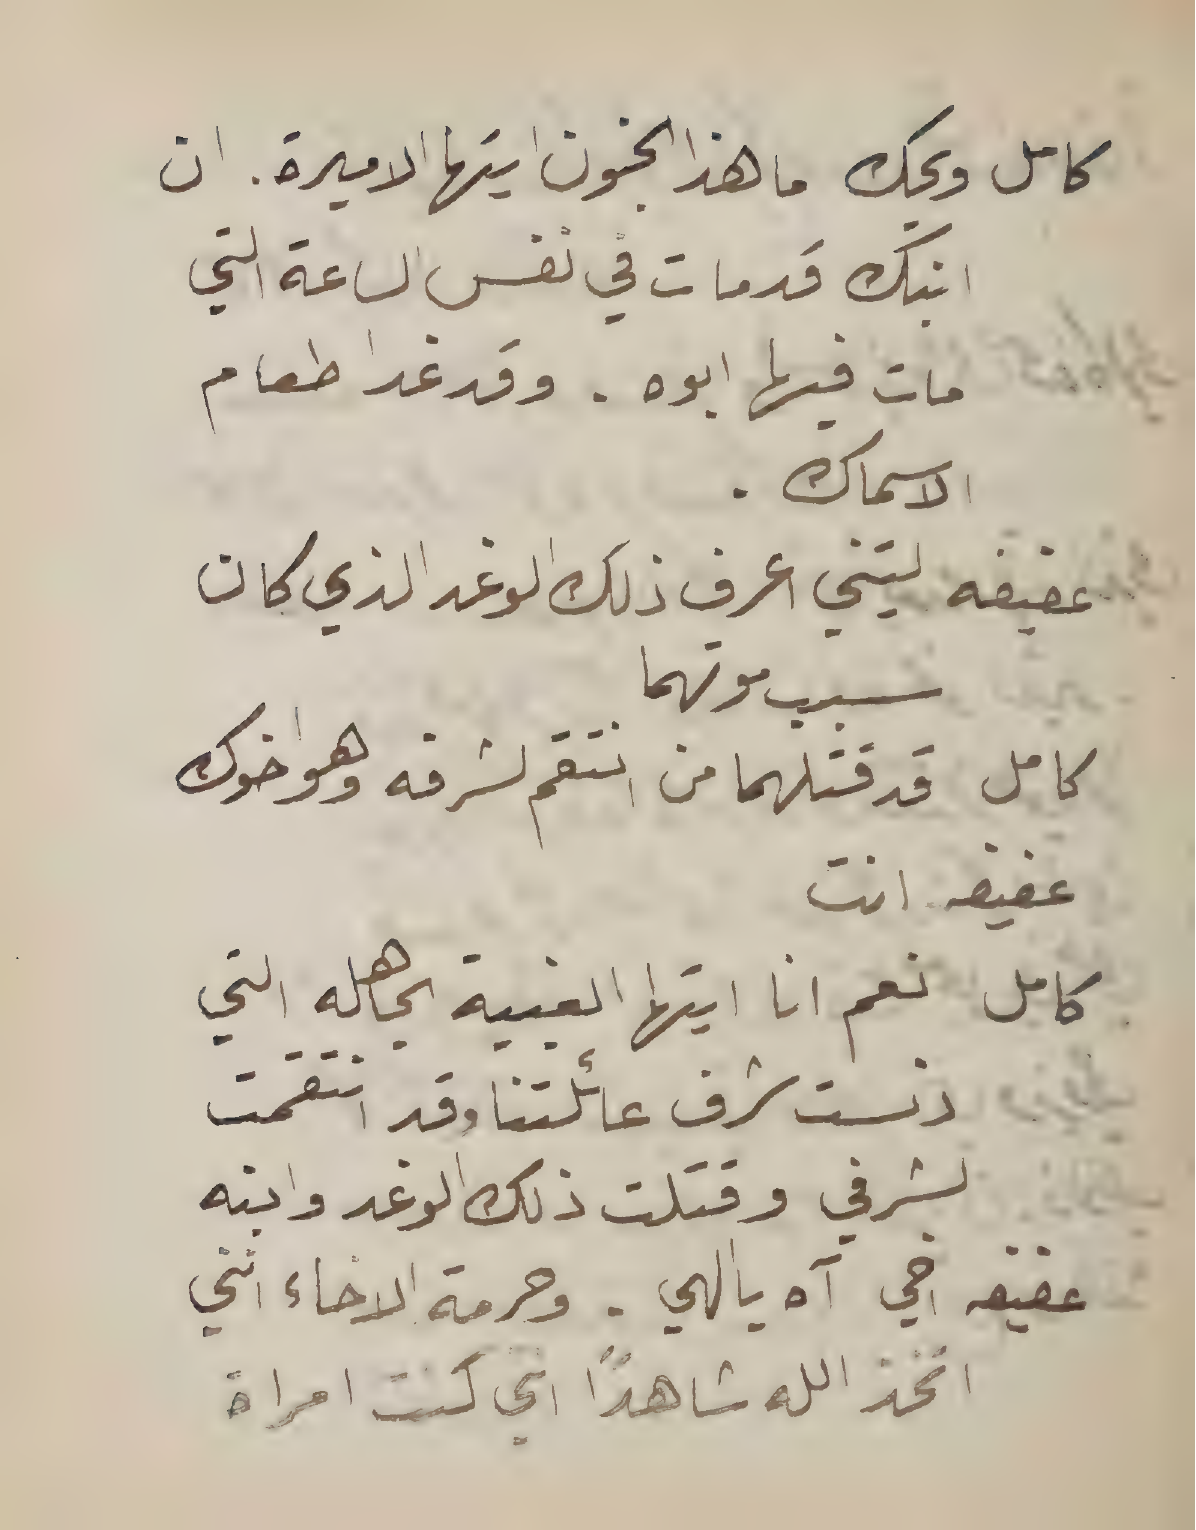 كامل ويحك ما هذا الجنون ايتها الاميرة. ان
ابنك قد مات في نفس الساعة التي
مات فيها ابوه . وقد غدا طعام
الاسماك .
عفيفه ليتني اعرف ذلك الوغد الذي كان
سبب موتهما
كامل قد قتلهما من انتقم لشرفه وهو اخوك
عفيفه انت
كامل نعم انا ايتها الغبية الجاهله التي
دنست شرف عائلتنا وقد انتقمت
لشرفي وقتلت ذلك الوغد وابنه
عفيفه اخي آه يا الهي . وحرمة الاخاء انني
اتخذ الله شاهدًا اني كنت امراة